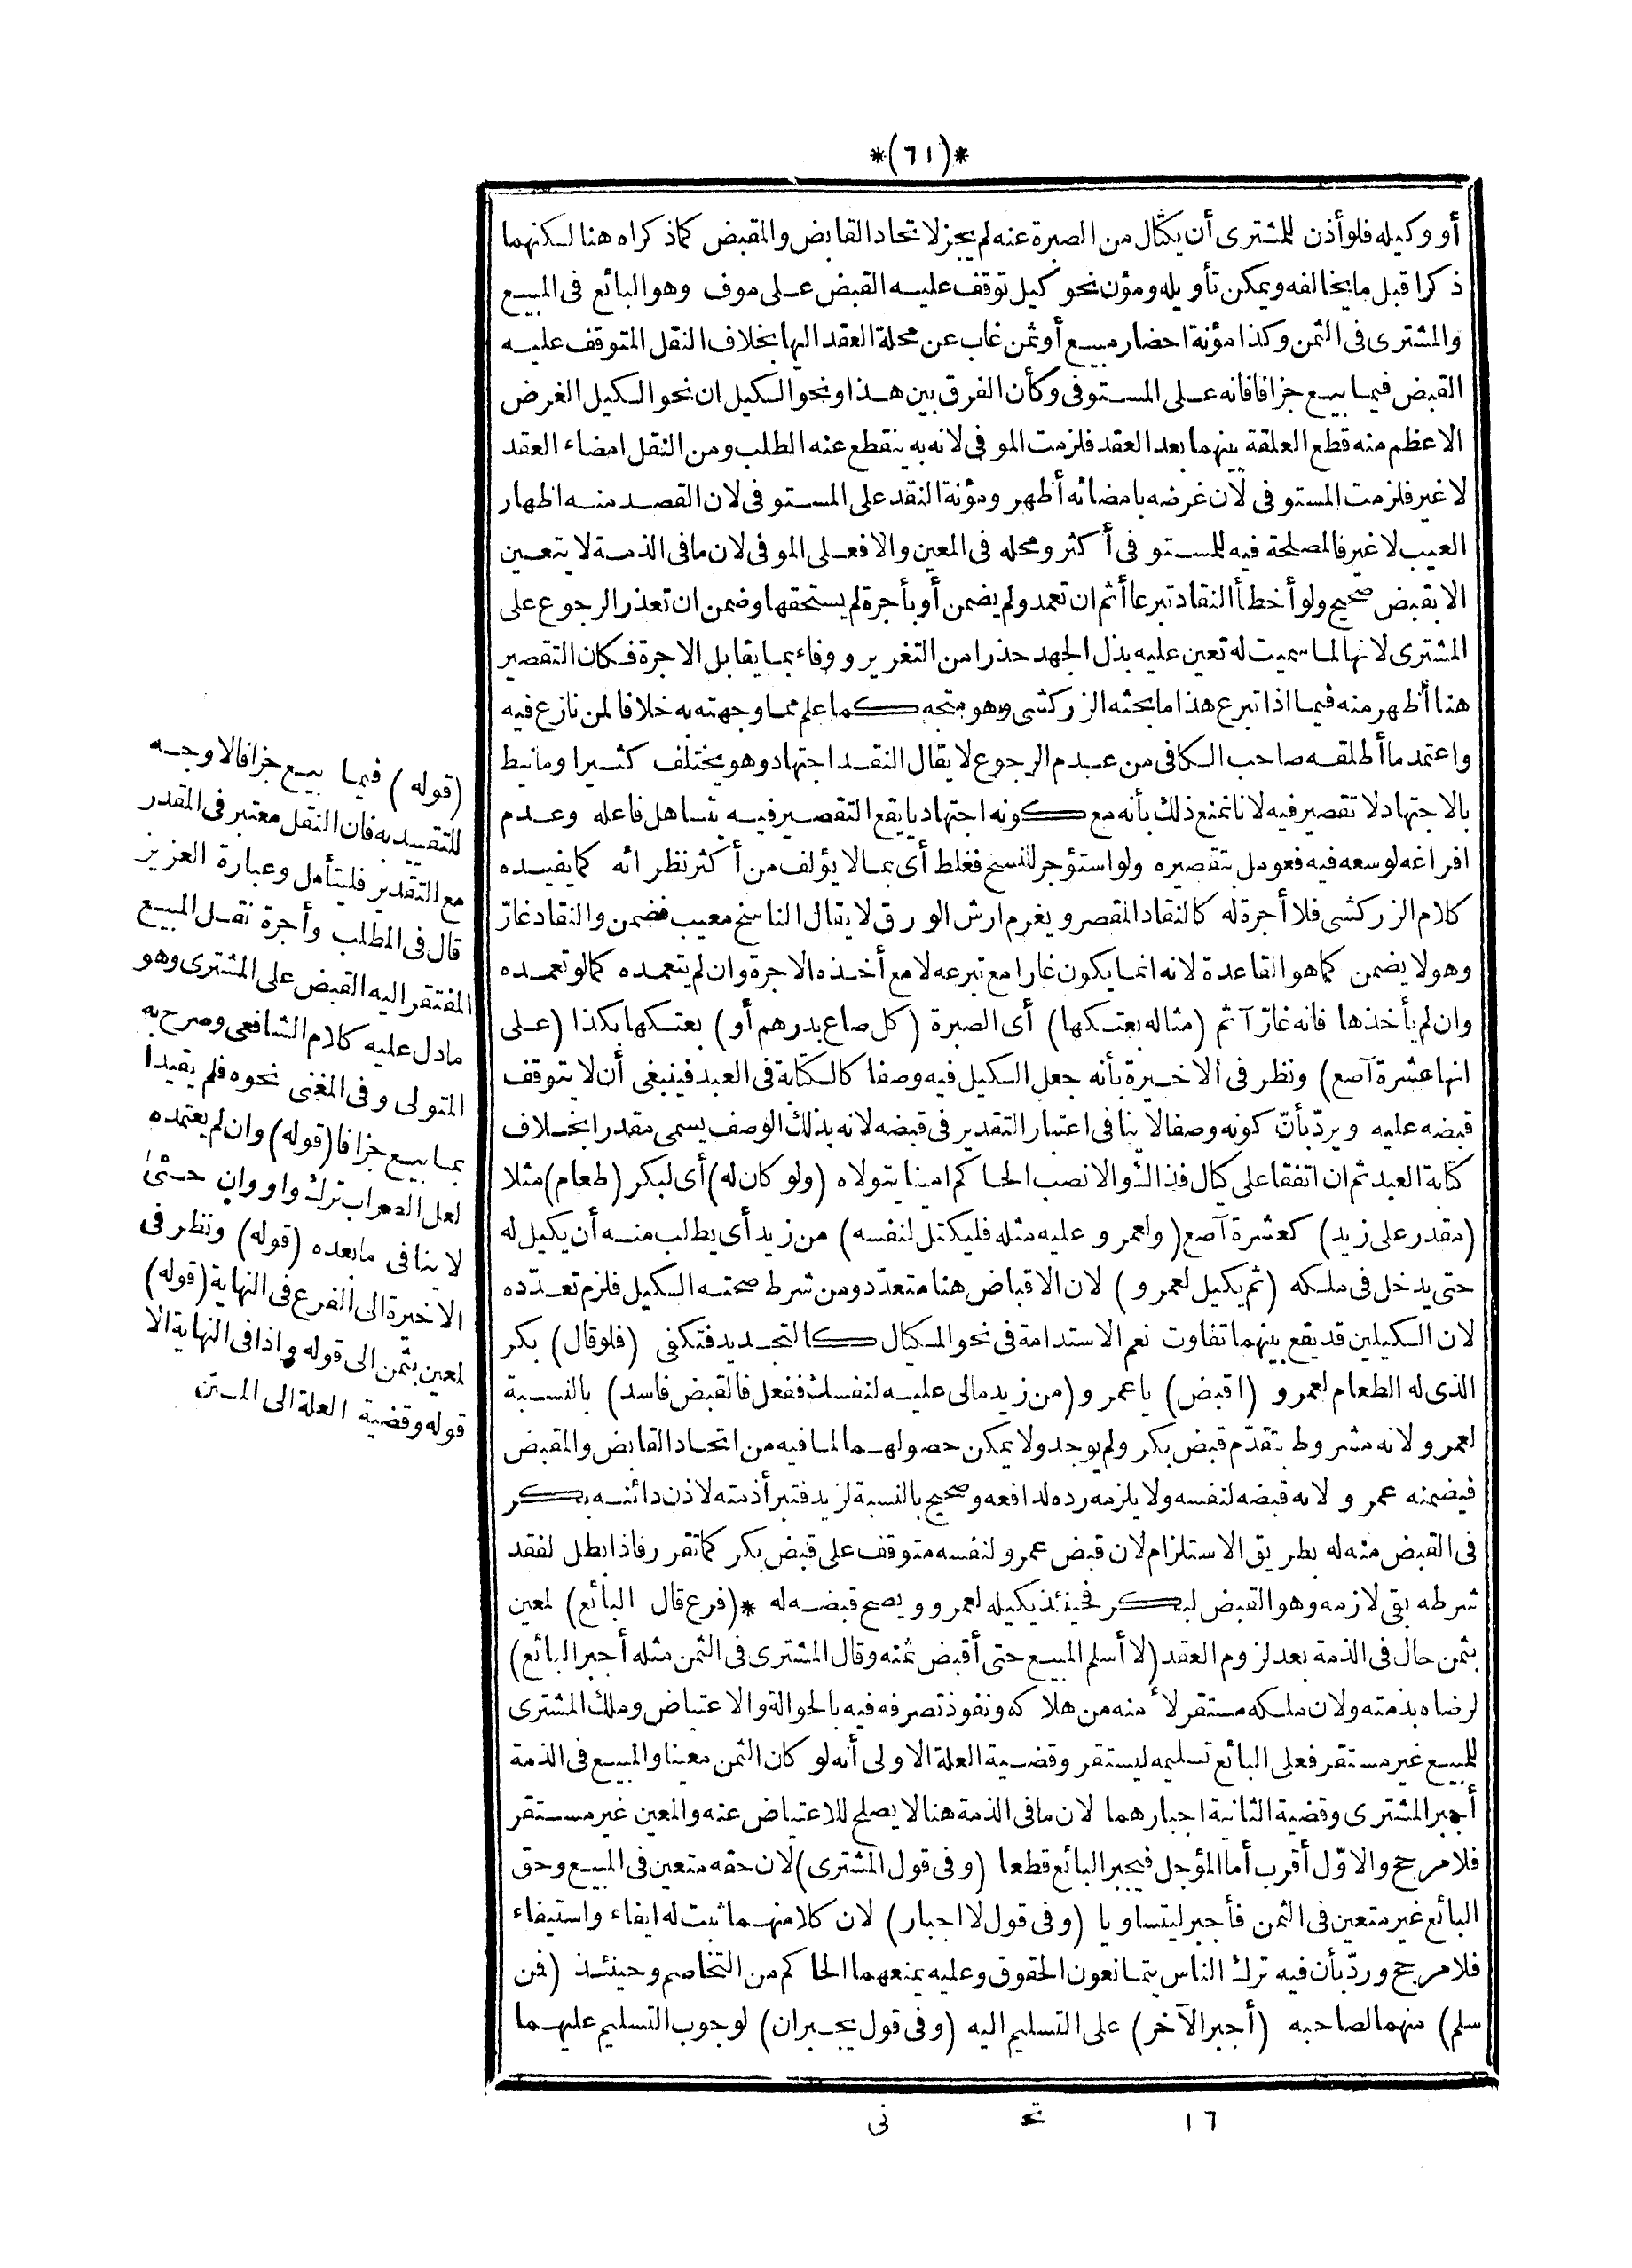 *(٦١)*
أو وكيله فلو أذن للمشترى أن يكتال من الصبرة عنه لم يجز لاتحاد القابض والمقبض كما ذكراه هنا لكنهما
ذكرا قبل ما يخالفه ويمكن تأويله ومؤن نحو كيل توقف عليه القبض على موف وهو البائع فى المبيع
والمشترى فى الثمن وكذا مؤنة احضار مبيع أو ثمن غاب عن محلة العقد اليها بخلاف النقل المتوقف عليه
القبض فيما بيع جزافا فانه على المستوفى وكأن الفرق بين هذا ونحو الكيل ان نحو الكيل الغرض
الاعظم منه قطع العلقة بينهما بعد العقد فلزمت الموفى لانه به ينقطع عنه الطلب ومن النقل امضاء العقد
لا غير فلزمت المستوفى لان غرضه بامضائه أظهر ومؤنة النقد على المستوفى لان القصد منه اظهار
العيب لا غير فالمصلحة فيه للمستوفى أكثر ومحله فى المعين والا فعلى الموفى لان ما فى الذمة لا يتعين
الا بقبض صحيح ولو أخطأ النقاد تبرعا أثم ان تعمد ولم يضمن أو بأجرة لم يستحقها وضمن ان تعذر الرجوع على
المشترى لانها لما سميت له تعين عليه بذل الجهد حذرا من التغرير ووفاء بما يقابل الاجرة فكان التقصير
هنا أظهر منه فيما اذا تبرع هذا ما بحثه الزركشى وهو متجه كما علم مما وجهته به خلافا لمن نازع فيه
واعتمد ما أطلقه صاحب الكافى من عدم الرجوع لا يقال النقد اجتهاد وهو يختلف كثيرا وما نيط
بالاجتهاد لا تقصير فيه لانا نمنع ذلك بأنه مع كونه اجتهاديا يقع التقصير فيه بتساهل فاعله وعدم
افراغه لوسعه فيه فعومل بتقصيره ولو استؤجر لنسخ فغلط أى بما لا يؤلف من أكثر نظرائه كما يفيده
كلام الزركشى فلا أجرة له كالنقاد المقصر ويغرم ارش الورق لا يقال الناسخ معيب فضمن والنقاد غارّ
وهو لا يضمن كما هو القاعدة لانه انما يكون غارا مع تبرعه لا مع أخذه الاجرة وان لم يتعمده كما لو تعمده
وان لم يأخذها فانه غارّ آثم (مثاله بعتكها) أى الصبرة (كل صاع بدرهم أو) بعتكها بكذا (على
انها عشرة آصع) ونظر فى الاخيرة بأنه جعل الكيل فيه وصفا كالكتابة فى العبد فينبغى أن لا يتوقف
قبضه عليه ويردّ بأنّ كونه وصفا لا ينافى اعتبار التقدير فى قبضه لانه بذلك الوصف يسمى مقدرا بخلاف
كتابة العبد ثم ان اتفقا على كيال فذاك والا نصب الحاكم امينا يتولاه (ولو كان له) أى لبكر (طعام) مثلا
(مقدر على زيد) كعشرة آصع (ولعمرو عليه مثله فليكتل لنفسه) من زيد أى يطلب منه أن يكيل له
حتى يدخل فى ملكه (ثم يكيل لعمرو) لان الاقباض هنا متعدد ومن شرط صحته الكيل فلزم تعدّده
لان الكيلين قد يقع بينهما تفاوت نعم الاستدامة فى نحو المكيال كالتجديد فتكفى (فلو قال) بكر
الذى له الطعام لعمرو (اقبض) يا عمرو (من زيد ما لى عليه لنفسك ففعل فالقبض فاسد) بالنسبة
لعمرو لانه مشروط بتقدّم قبض بكر ولم يوجد ولا يمكن حصولهما لما فيه من اتحاد القابض والمقبض
فيضمنه عمرو لانه قبضه لنفسه ولا يلزمه رده لدافعه وصحيح بالنسبة لزيد فتبرأ ذمته لاذن دائنه بكر
فى القبض منه له بطريق الاستلزام لان قبض عمرو لنفسه متوقف على قبض بكر كما تقرر فاذا بطل لفقد
شرطه بقى لازمه وهو القبض لبكر فحينئذ يكيله لعمرو ويصح قبضه له *(فرع قال البائع) لمعين
بثمن حال فى الذمة بعد لزوم العقد (لا أسلم المبيع حتى أقبض ثمنه وقال المشترى فى الثمن مثله أجبر البائع)
لرضاه بذمته ولان ملكه مستقر لأمنه من هلاكه ونفوذ تصرفه فيه بالحوالة والاعتياض وملك المشترى
للمبيع غير مستقر فعلى البائع تسليمه ليستقر وقضية العلة الاولى أنه لو كان الثمن معينا والمبيع فى الذمة
أجبر المشترى وقضية الثانية اجبارهما لان ما فى الذمة هنا لا يصلح للاعتياض عنه والمعين غير مستقر
فلا مرجح والاوّل أقرب أما المؤجل فيجبر البائع قطعا (وفى قول المشترى) لان حقه متعين فى المبيع وحق
البائع غير متعين فى الثمن فأجبر ليتساويا (وفى قول لا اجبار) لان كلا منهما ثبت له ايفاء واستيفاء
فلا مرجح وردّ بأن فيه ترك الناس يتمانعون الحقوق وعليه يمنعهما الحاكم من التخاصم وحينئذ (فمن
سلم) منهما لصاحبه (أجبر الآخر) على التسليم اليه (وفى قول يجبران) لوجوب التسليم عليهما
(قوله) فيما بيع جزافا الاوجه
للتقييد به فان النقل معتبر فى المقدر
مع التقدير فليتأمل وعبارة العزيز
قال فى المطلب وأجرة نقل المبيع
المفتقر اليه القبض على المشترى وهو
ما دل عليه كلام الشافعى وصرح به
المتولى وفى المغنى نحوه فلم يقيدا
بما بيع جزافا (قوله) وان لم يعتمده
لعل الصواب ترك واو وان حتى
لا ينافى ما بعده (قوله) ونظر فى
الاخيرة الى الفرع فى النهاية (قوله)
لمعين بثمن الى قوله واذا فى النهاية الا
قوله وقضية العلة الى المتن
١٦ تحـ نى